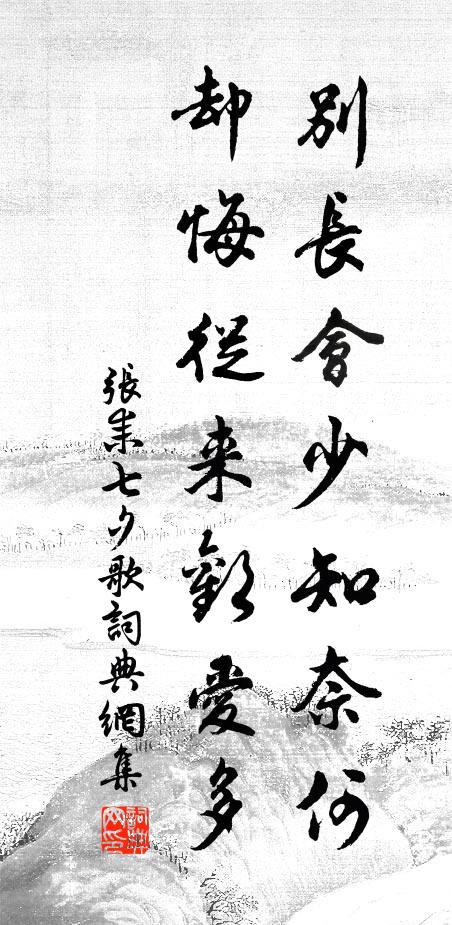 別長會少知奈何
却悔從来歡愛多
張耒七夕歌詞典網集
詞典网印